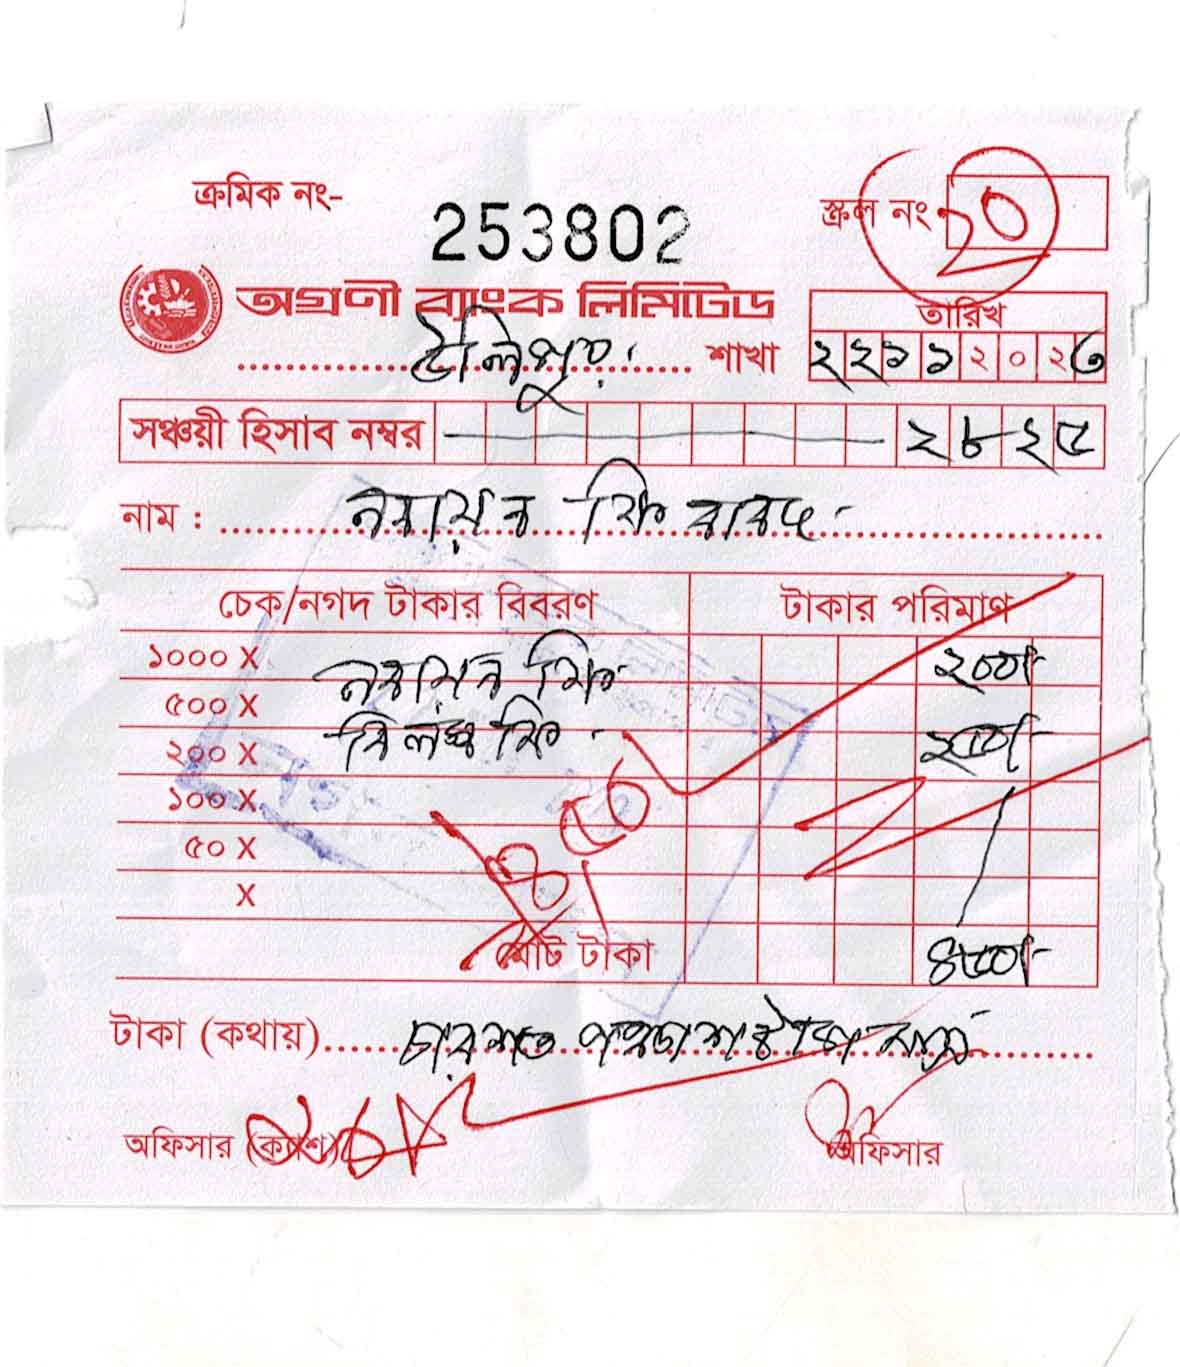 ক্রমিক নং-
253802
স্ক্রল নং ২০
অগ্রণী ব্যাংক লিমিটেড
উলিপুর শাখা
তারিখ
২২১১২০২৩
সঞ্চয়ী হিসাব নম্বর ২৮২৫
নাম : নবায়ন ফি বাবদ
চেক/নগদ টাকার বিবরণ টাকার পরিমাণ
১০০০ X নবায়ন ফি
৫০০ X বিলম্ব ফি
২০০ X
১০০ X
৫০ X
X
৪৫০/
মোট টাকা
টাকা (কথায়) চারশত পঞ্চাশ টাকা মাত্র
অফিসার (ক্যাশ)
অফিসার